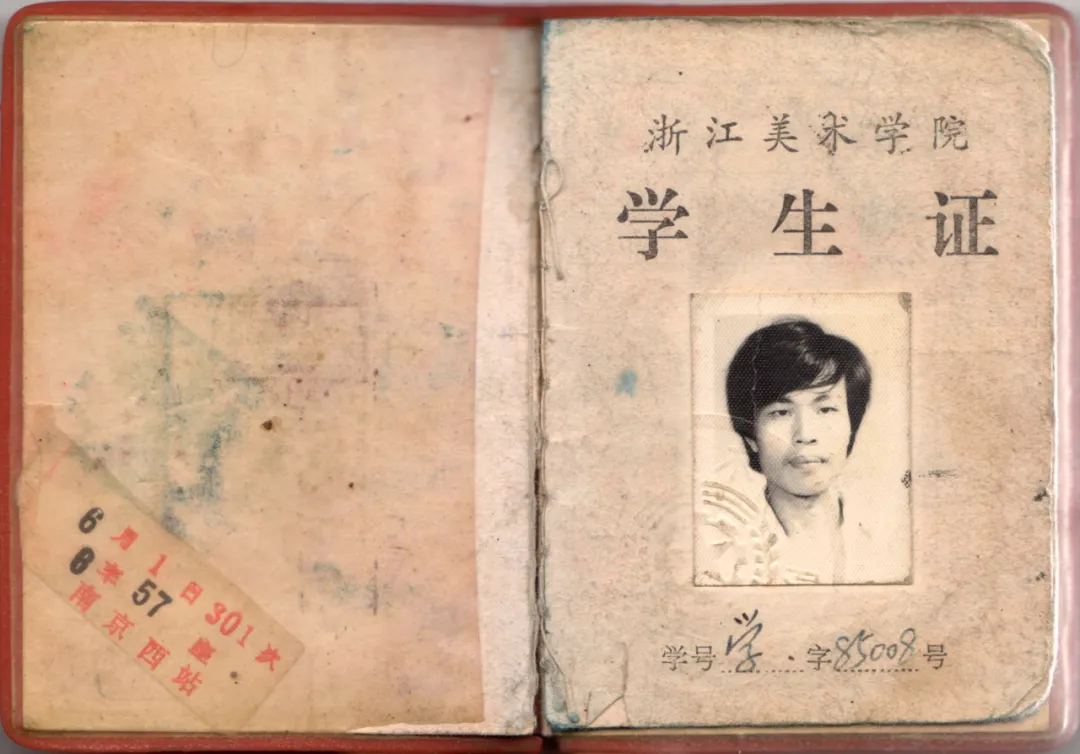 6月1日301次
8车57座
南京西站
浙江美术学院
学生证
学号学字85008号